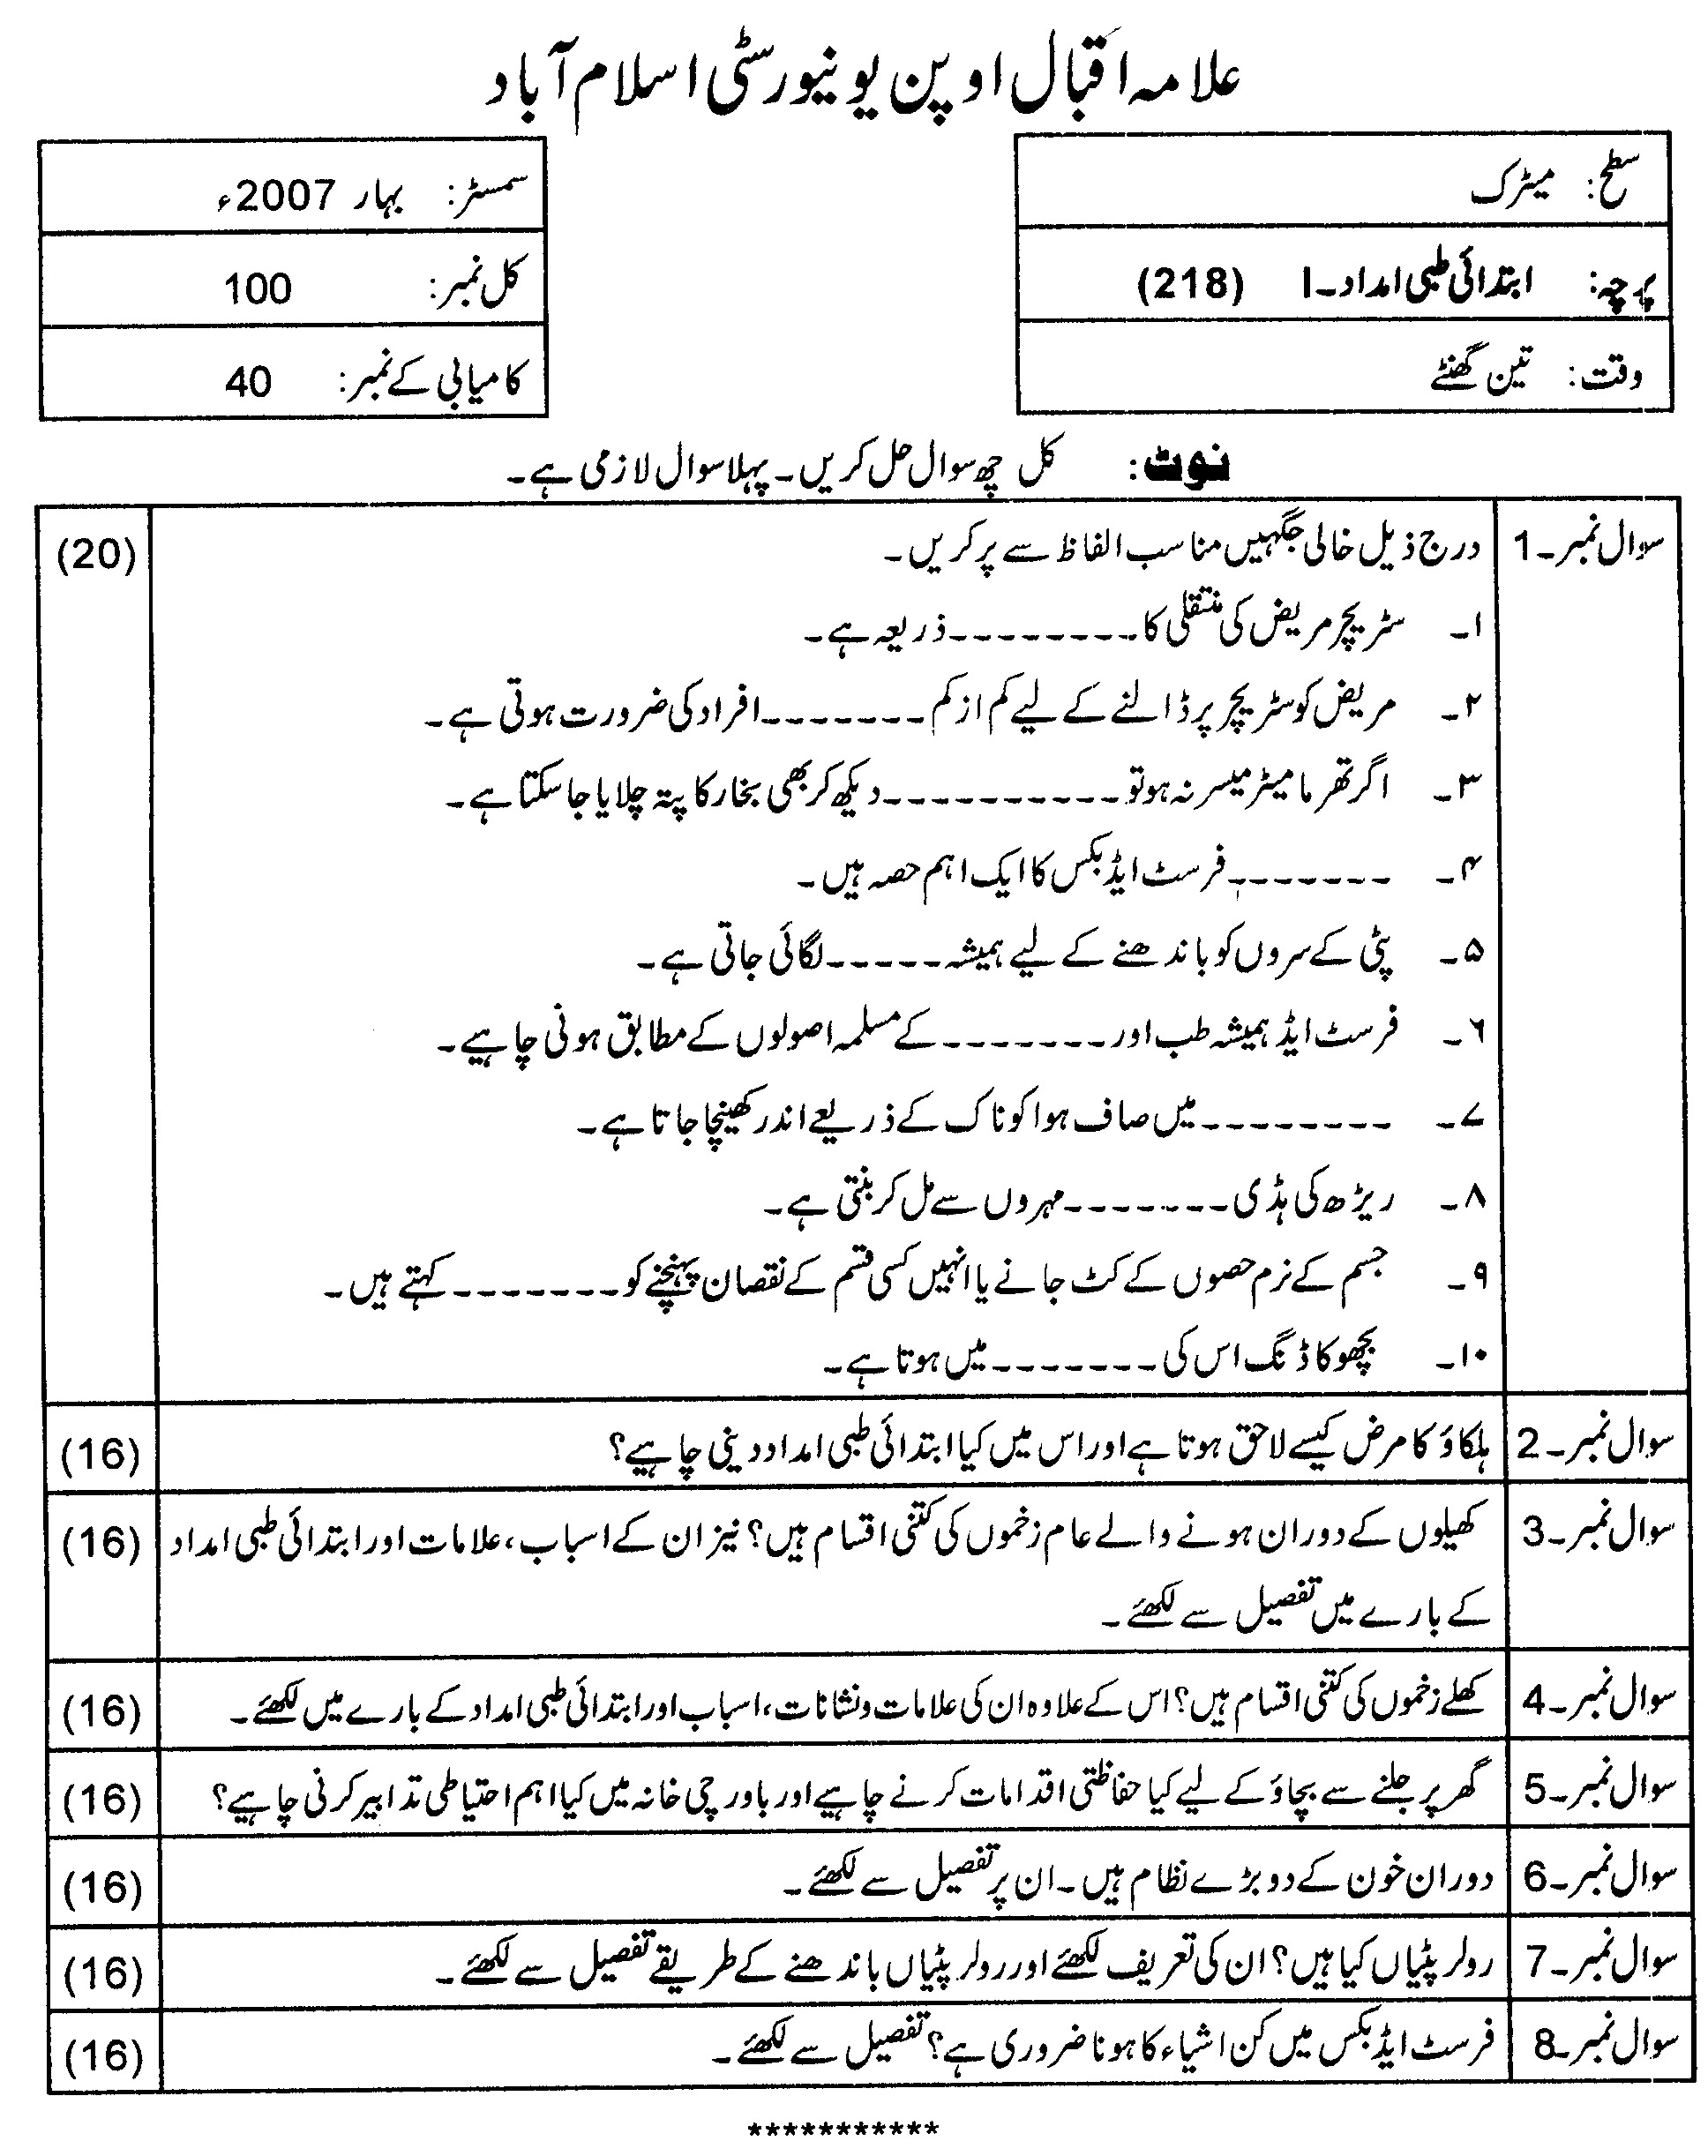 علامہ اقبال اوپن یونیورسٹی اسلام آباد
سطح: میٹرک
سمسٹر: بہار 2007ء
پرچہ: ابتدائی طبی امداد۔I (218)
کل نمبر: 100
وقت: تین گھنٹے
کامیابی کے نمبر: 40
نوٹ: کل چھ سوال حل کریں۔ پہلا سوال لازمی ہے۔
سوال نمبر۔1 درج ذیل خالی جگہیں مناسب الفاظ سے پر کریں۔ (20)
۱۔ سٹریچر مریض کی منتقلی کا --------- ذریعہ ہے۔
۲۔ مریض کو سٹریچر پر ڈالنے کے لیے کم از کم ------- افراد کی ضرورت ہوتی ہے۔
۳۔ اگر تھرمامیٹر میسر نہ ہو تو ---------- دیکھ کر بھی بخار کا پتہ چلایا جا سکتا ہے۔
۴۔ ------- فرسٹ ایڈ بکس کا ایک اہم حصہ ہیں۔
۵۔ پٹی کے سروں کو باندھنے کے لیے ہمیشہ ----- لگائی جاتی ہے۔
۶۔ فرسٹ ایڈ ہمیشہ طب اور ------- کے مسلمہ اصولوں کے مطابق ہونی چاہیے۔
۷۔ -------- میں صاف ہوا کو ناک کے ذریعے اندر کھینچا جاتا ہے۔
۸۔ ریڑھ کی ہڈی ------- مہروں سے مل کر بنتی ہے۔
۹۔ جسم کے نرم حصوں کے کٹ جانے یا انہیں کسی قسم کے نقصان پہنچنے کو ------- کہتے ہیں۔
۱۰۔ بچھو کا ڈنگ اس کی ------- میں ہوتا ہے۔
سوال نمبر۔2 ہلکاؤ کا مرض کیسے لاحق ہوتا ہے اور اس میں کیا ابتدائی طبی امداد دینی چاہیے؟ (16)
سوال نمبر۔3 کھیلوں کے دوران ہونے والے عام زخموں کی کتنی اقسام ہیں؟ نیز ان کے اسباب، علامات اور ابتدائی طبی امداد (16)
کے بارے میں تفصیل سے لکھئے۔
سوال نمبر۔4 کھلے زخموں کی کتنی اقسام ہیں؟ اس کے علاوہ ان کی علامات و نشانات، اسباب اور ابتدائی طبی امداد کے بارے میں لکھئے۔ (16)
سوال نمبر۔5 گھر پر جلنے سے بچاؤ کے لیے کیا حفاظتی اقدامات کرنے چاہیے اور باورچی خانہ میں کیا اہم احتیاطی تدابیر کرنی چاہیے؟ (16)
سوال نمبر۔6 دوران خون کے دو بڑے نظام ہیں۔ ان پر تفصیل سے لکھئے۔ (16)
سوال نمبر۔7 رولر پٹیاں کیا ہیں؟ ان کی تعریف لکھئے اور رولر پٹیاں باندھنے کے طریقے تفصیل سے لکھئے۔ (16)
سوال نمبر۔8 فرسٹ ایڈ بکس میں کن اشیاء کا ہونا ضروری ہے؟ تفصیل سے لکھئے۔ (16)
***********